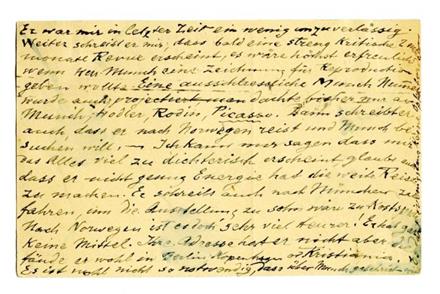 Er war mir in letzter Zeit ein wenig unzuverlässig.
Weiter schreibt er mir, dass bald eine streng Kritische
monats Revue erscheint, es wäre höchst erfreulich
wenn Herr Munch eine Zeichnung für Reproduction
geben wollte. Eine ausschliessliche Munch Num
wurde auch projectiert, man dachte bisher nur an
Munch, Hodler, Rodin, Picasso. Dann schreibt er
auch, dass er nach Norwegen reist und Munch be
suchen will. — Ich kann nur sagen dass mir
das Alles viel zu dichterisch erscheint glaube
dass er nicht genug Energie hat die weite Reise
zu machen. Er schrieb auch nach München zu
fahren, um die Ausstellung zu
Nach Norwegen ist es doch sehr viel teurer! Er hat
keine Mittel. Ihre Adresse hat er nicht aber
fände er wohl in Berlin, Kopenhagen od Kristiania
Es ist wohl nicht so notwendig dass über Munch geschrieben